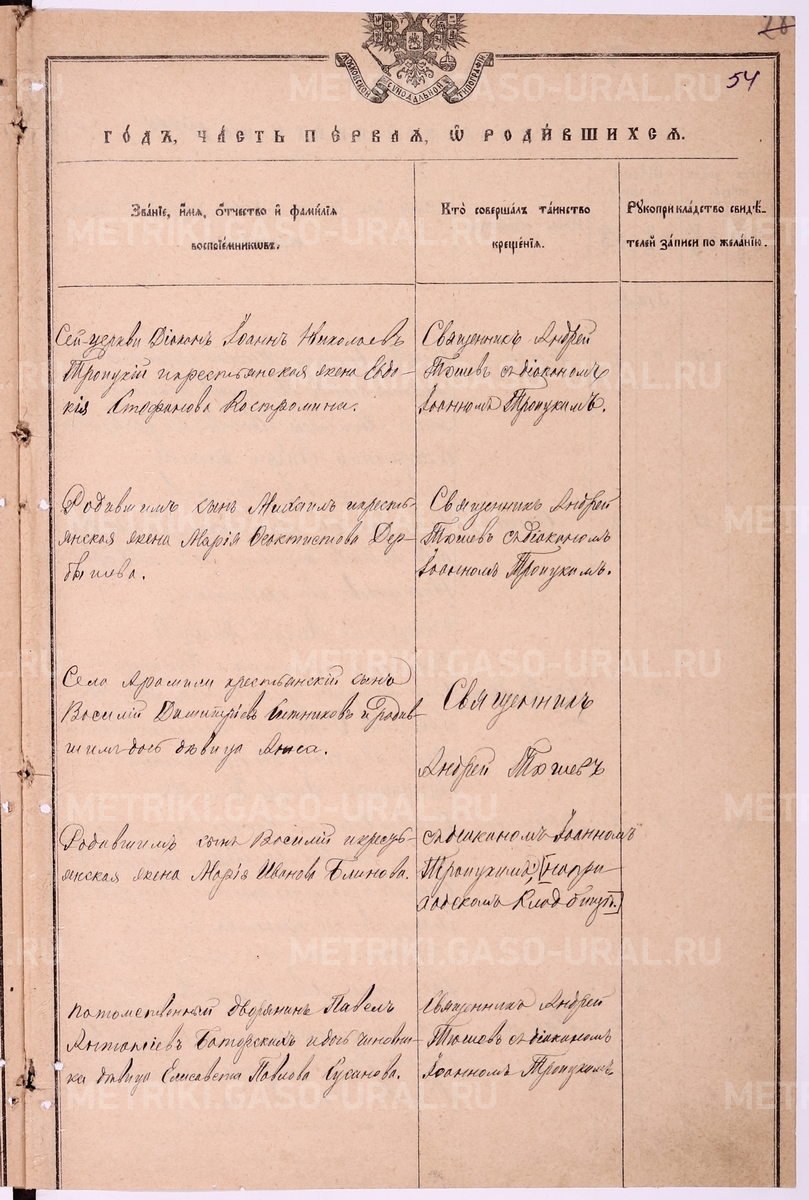 28
54
МОСКОВСКОЙ СѴНОДАЛЬНОЙ ТИПОГРАФІИ
METRIKI.GASO-URAL.RU
ГОДЪ, ЧАСТЬ ПЕРВАЯ, Ѡ РОДИВШИХСЯ.
Званіе, имя, отчество и фамилія воспріемниковъ.
Кто совершалъ таинство крещенія.
Рукоприкладство свидѣтелей записи по желанію.
Сей церкви Діаконъ Іоаннъ Николаевъ
Троицкій и крестьянская жена Евдо-
кія Стефанова Костромина.
Священникъ Андрей
Тюшевъ съ діакономъ
Іоанномъ Троицкимъ.
Родившихъ сынъ Михаилъ и кресть-
янская жена Марія Феоктистова Дер-
бышева.
Священникъ Андрей
Тюшевъ съ діакономъ
Іоанномъ Троицкимъ.
Села Арамили крестьянскій сынъ
Василій Димитріевъ Ситниковъ и родив-
шихъ дочь дѣвица Анна.
Священникъ
Андрей Тюшевъ
Родившихъ сынъ Василій и кресть-
янская жена Марія Иванова Блинова.
съ діакономъ Іоанномъ
Троицкимъ
Потомственный дворянинъ Павелъ
Антоніевъ и дочь чиновни-
ка дѣвица Елисавета Павлова Сусанова.
Священникъ Андрей
Тюшевъ съ діакономъ
Іоанномъ Троицкимъ